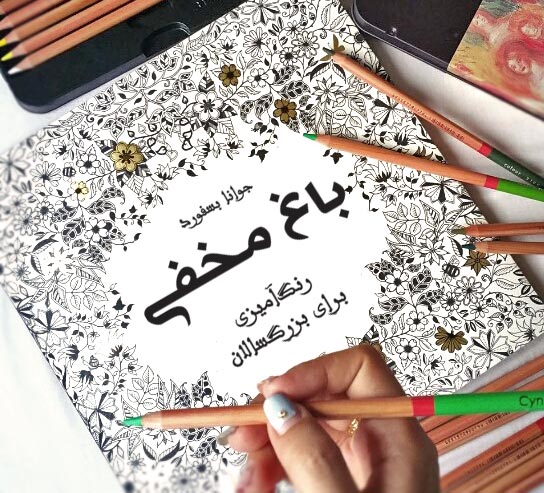 جوانا بسفورد
باغ مخفی
رنگ‌آمیزی
برای بزرگسالان
Cyn